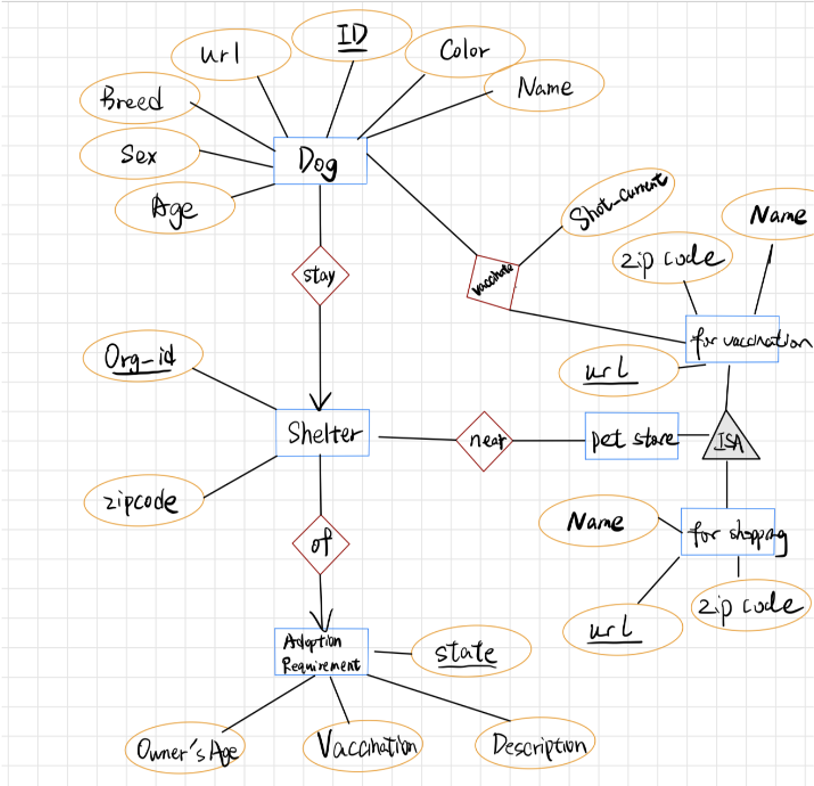 url
ID
Color
Name
Breed
Sex
Age
Dog
Shot_current
Name
zip code
stay
vaccinate
for vaccination
url
Org-id
Shelter
near
pet store
ISA
zipcode
Name
for shopping
of
url
zip code
Adoption
Requirement
state
Owner's Age
Vaccination
Description